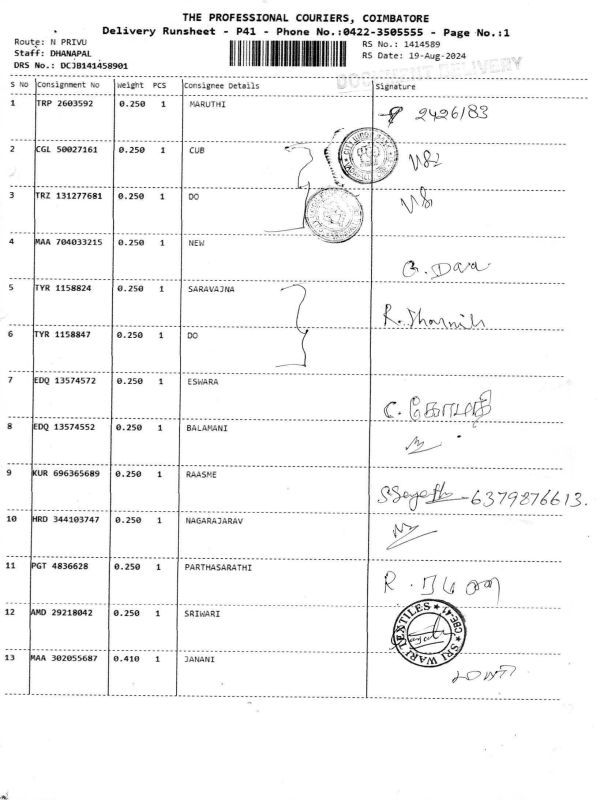 THE PROFESSIONAL COURIERS, COIMBATORE
Delivery Runsheet - P41 - Phone No.:0422-3505555 - Page No.:1
Route: N PRIVU
RS No.: 1414589
Staff: DHANAPAL
RS Date: 19-Aug-2024
DRS No.: DCJB141458901
DOCUMENT DELIVERY
S No Consignment No Weight PCS Consignee Details Signature
1 TRP 2603592 0.250 1 MARUTHI 2426183
2 CGL 50027161 0.250 1 CUB
3 TRZ 131277681 0.250 1 DO
4 MAA 704033215 0.250 1 NEW
5 TYR 1158824 0.250 1 SARAVAJNA
6 TYR 1158847 0.250 1 DO
7 EDQ 13574572 0.250 1 ESWARA
C. கோமதி
8 EDQ 13574552 0.250 1 BALAMANI
9 KUR 696365689 0.250 1 RAASME
-6379876613.
10 HRD 344103747 0.250 1 NAGARAJARAV
11 PGT 4836628 0.250 1 PARTHASARATHI
R.
12 AMD 29218042 0.250 1 SRIWARI
SRI WARI TEXTILES ★ CBE-41 ★
13 MAA 302055687 0.410 1 JANANI